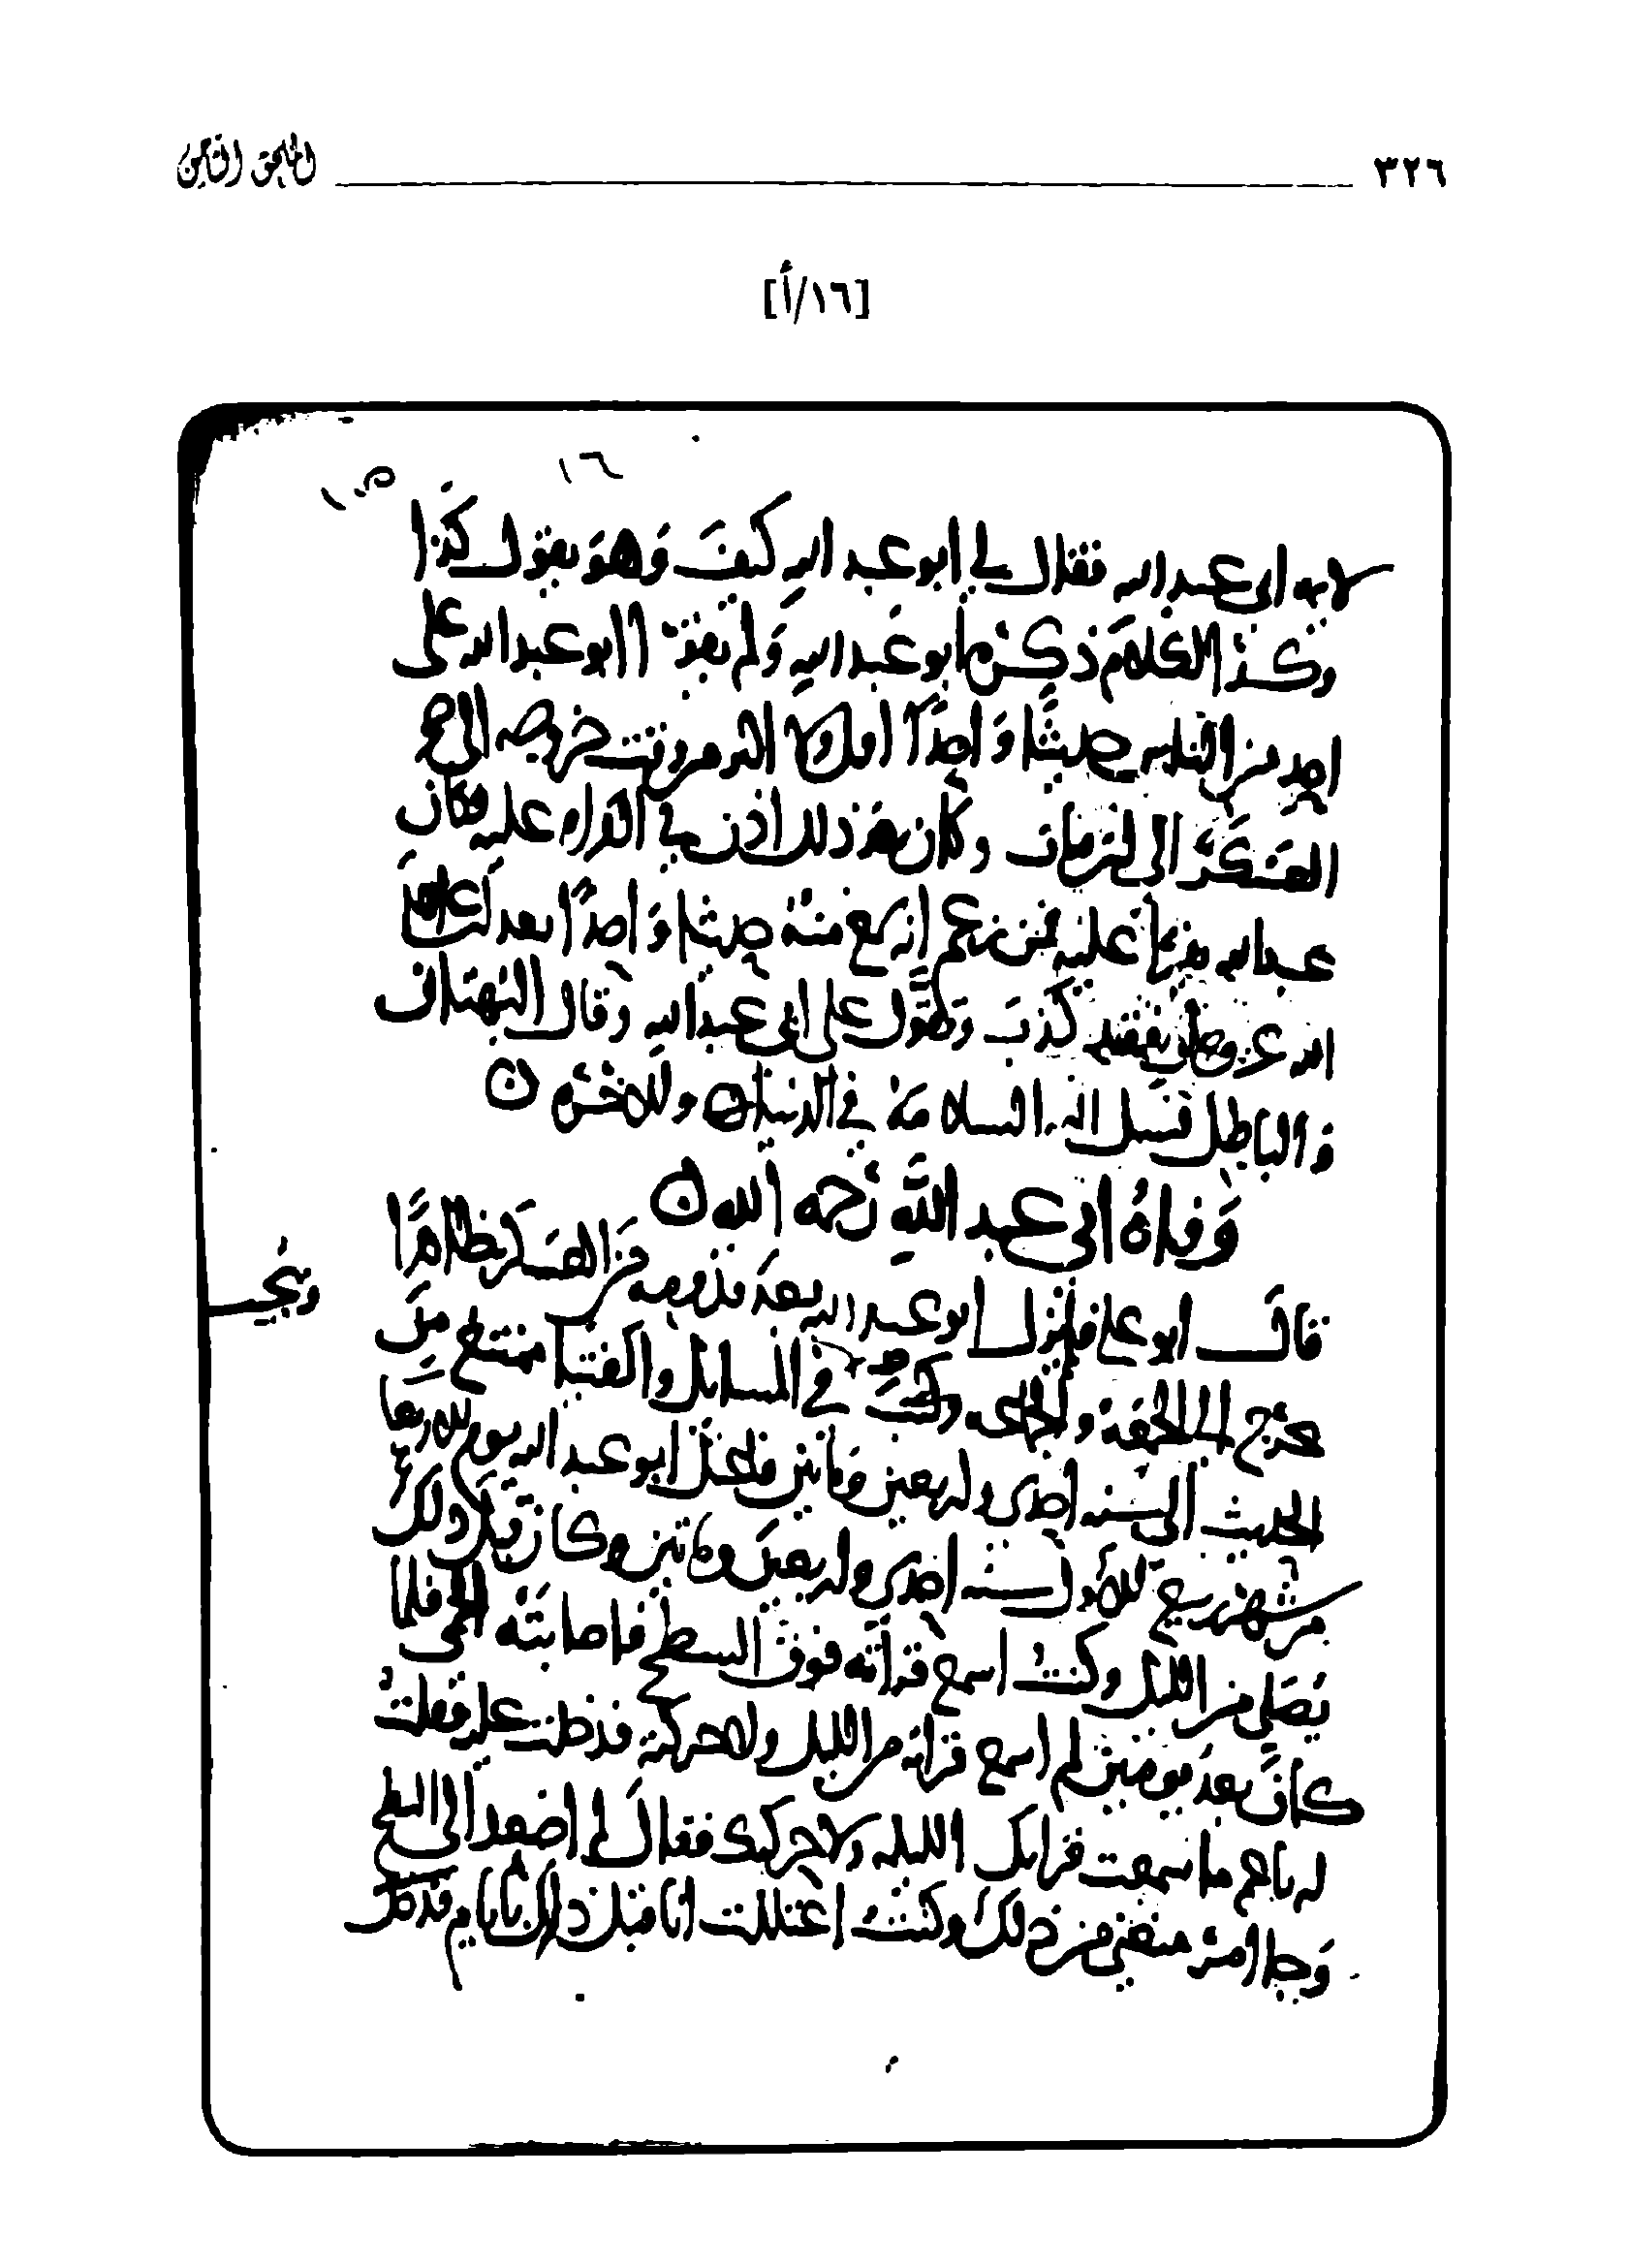 ٣٢٦ الملحق الثامن
[١٦/أ]
١٦
لابيه ابي عبد الله فقال لي ابو عبد الله كيف وهو يقول كذا
وكذا لكلام ذكره ابو عبد الله ولم يقرا ابو عبد الله على
احد من الناس حديثا واحدا اولا الدهر وقت خروجه الى
العسكر الى ان مات وكان بعد ذلك اذن في عليه فكان
عبد الله عليه فمن زعم انه سمع منه حديثا واحدا بعد
الله عز وجل فقد كذب وتقول على ابي عبد الله وقال البهتان
والباطل فنسل الله السلامة في الدنيا والاخرة ن
وفاة ابي عبد الله رحمه الله ن
قال ابو علي فلم يزل ابو عبد الله بعد قدومه من العسكر ظاهرا
يخرج الى الجمعة والجماعه في المسائل والفتيا ممتنع من
ويجيب
الحديث الى سنه احدى واربعين ومائتين فاعتل ابو عبد الله يوم الاربعا
من شهر ربيع الاول سنه احدى واربعين ومائتين وكان قبل ذلك
يصلي من الليل وكنت اسمع قراته فوق السطح فاصابته الحمى فلما
كان بعد يومين لم اسمع قراته من الليل ولا حركته فدخلت عليه فقلت
له يا عم ما سمعت قراتك الليله ولا حركتك فقال لي اصعد الى السطح
وجا امر منعني من ذلك وكنت اعتللت انا قبل ذلك بايام فدخل